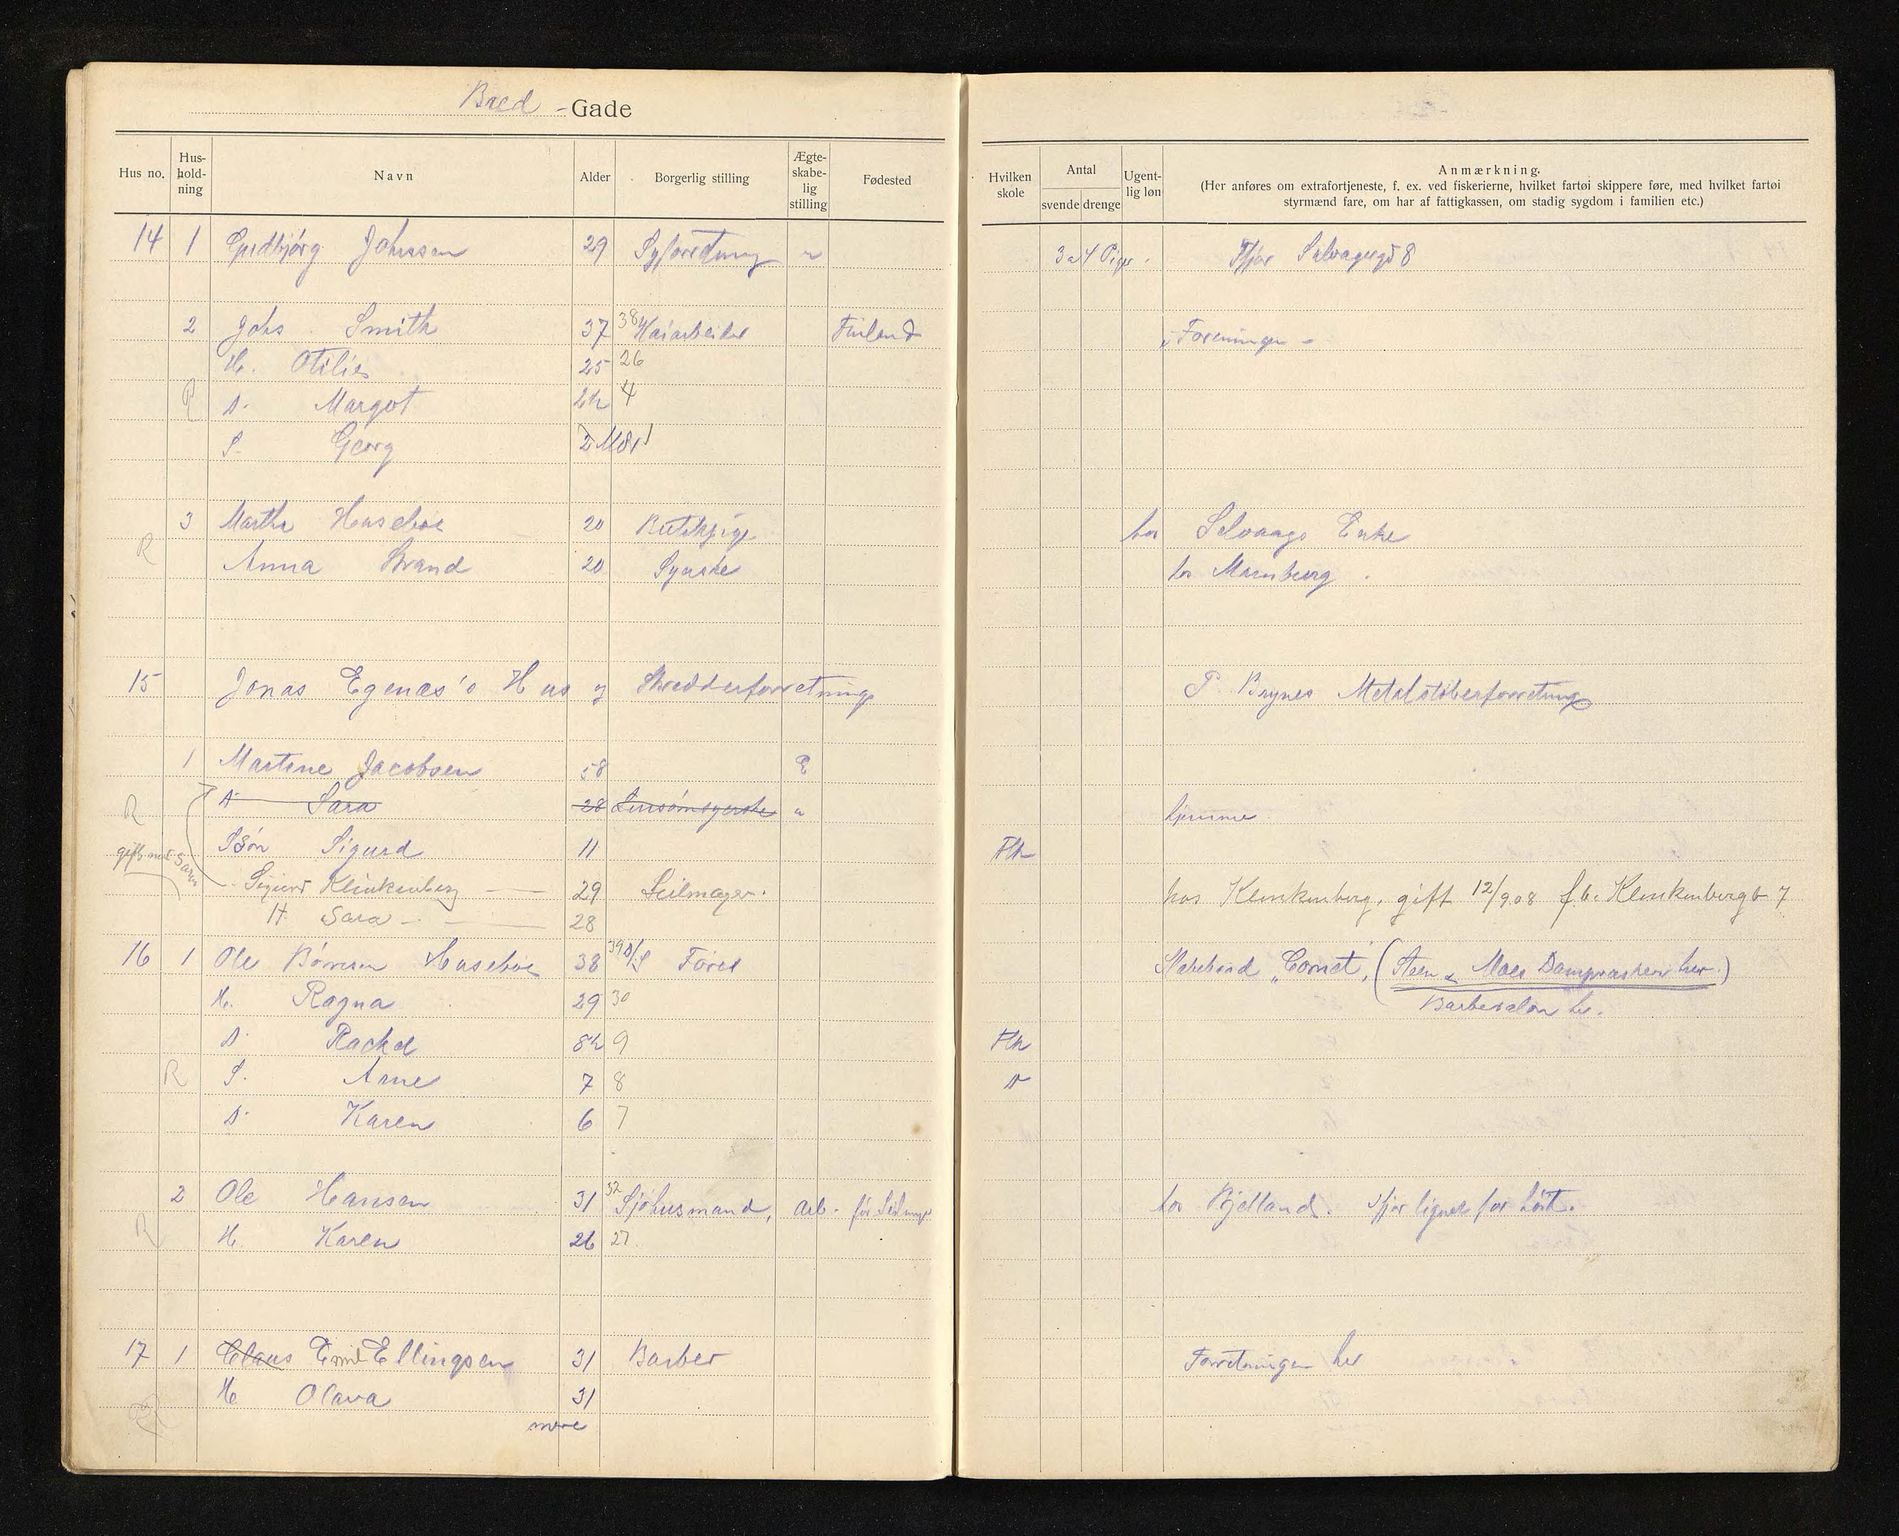 Bred - Gade
Hus no. Hus-hold-ning Navn Alder Borgerlig stilling Ægte-skabe-lig stilling Fødested Hvilken skole Antal svende drenge Ugent-lig løn Anmærkning.
(Her anføres om extrafortjeneste, f. ex. ved fiskerierne, hvilket fartøi skippere føre, med hvilket fartøi
styrmænd fare, om har af fattigkassen, om stadig sygdom i familien etc.)
14 1 Gudbjörg Johnsen 29 Syforretning " 3 a 4 Piger. Ifjor Selvaagergd 8
2 Johs Smith 37 38 Finland "Foreningen"
H. Otilie 25 26
D. Margot 2½ 4
S. Georg 2 Mdr
3 Martha Huseboe 20 Butikpige hos Selvaags Enke
R Anna Strand 20 Syerske hos Marnburg
15 Jonas Egenæs's Hus og Skredderforretning P. Brynes Metalstöberforretning
1 Martine Jacobsen 58 E
R D Sara 28 Linsömsyerske " hjemme
gift med Sara Sön Sigurd 11 Flk
Sigurd Klinkenberg 29 Seilmager. hos Klinkenberg, gift 12/9 08 f.b. Klinkenberggt 7
H Sara 28
16 1 Ole Börresen Huseboe 38 39 D/S Förer Slæbebaad "Comet", (Steen & Moes Dampvaskeri her.)
H. Ragna 29 30 Barbersalon her.
D. Rachel 8½ 9 Flk
R S. Arne 7 8 D
D. Karen 6 7
2 Ole Hansen 31 32 Sjöhusmand, arb. för hos Bjelland. Ifjor lignet for höit.
R H Karen 26 27
17 1 Claus Emil Ellingsen 31 Barber Forretningen her
R H Olava 31
mere